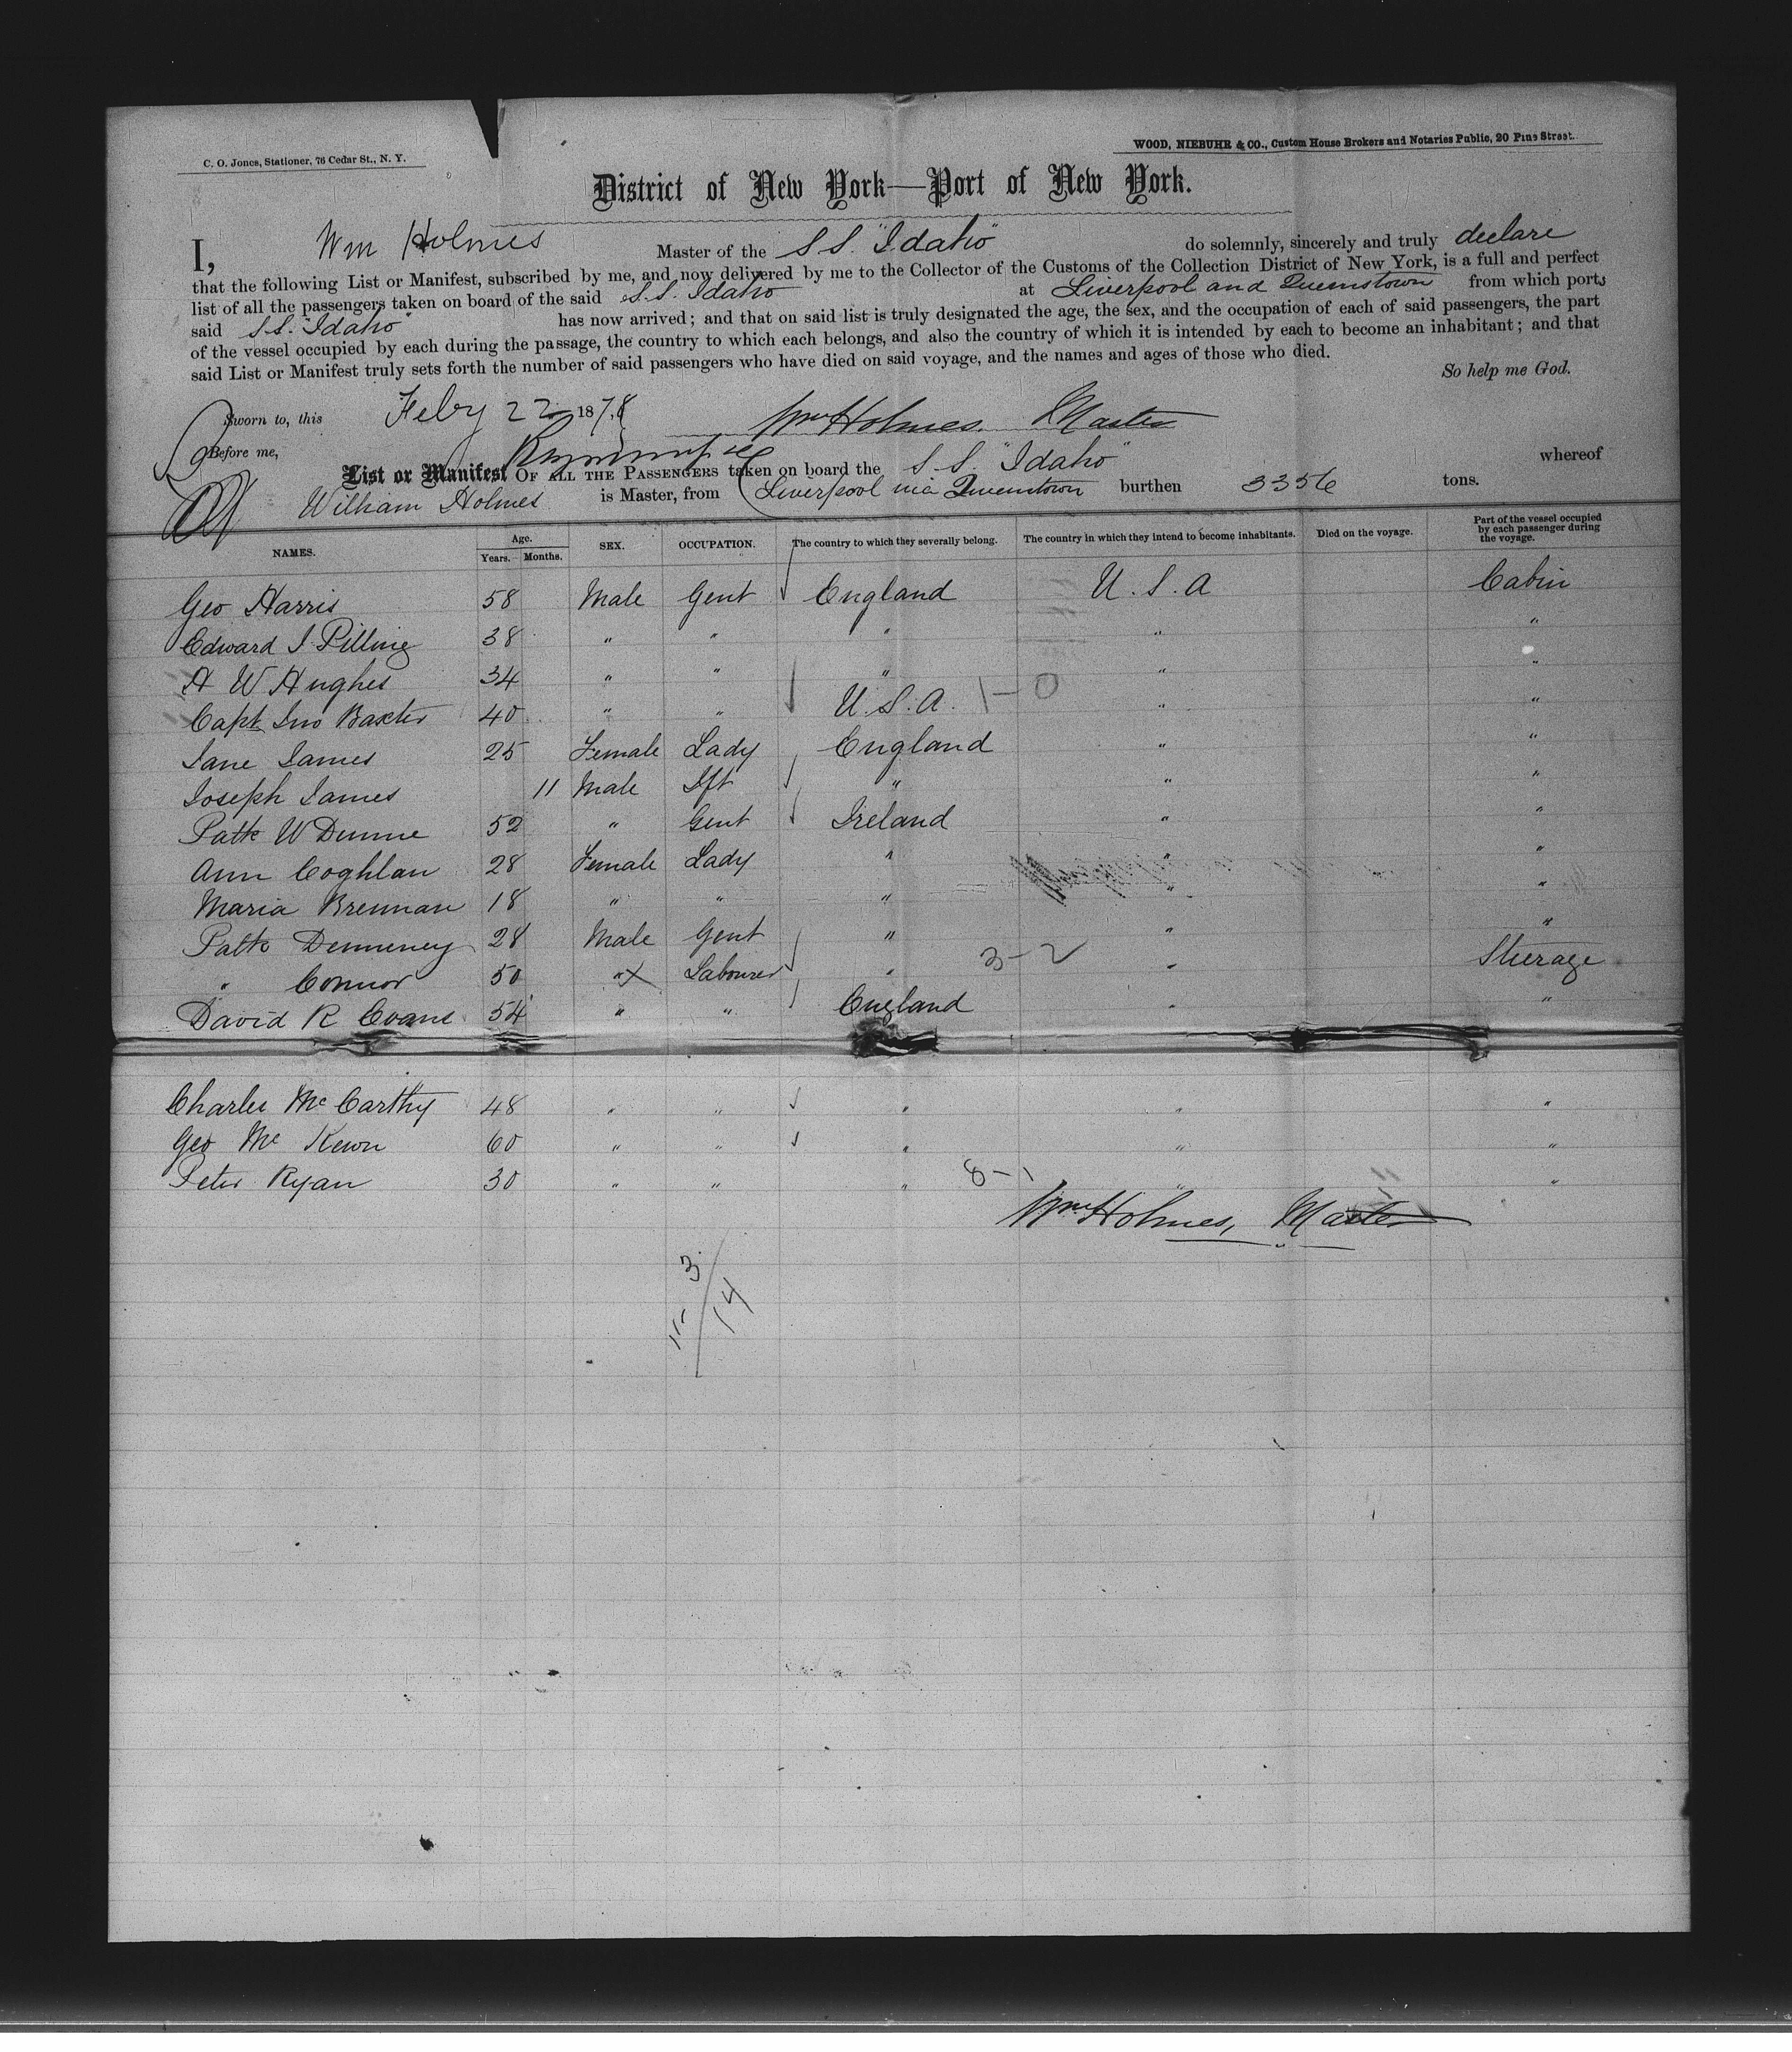 C. O. Jones, Stationer, 76 Cedar St., N. Y.
WOOD, NIEBUHR & CO., Custom House Brokers and Notaries Public, 20 Pine Street.
District of New York—Port of New York.
I, Wm Holmes Master of the S.S. "Idaho" do solemnly, sincerely and truly declare
that the following List or Manifest, subscribed by me, and now delivered by me to the Collector of the Customs of the Collection District of New York, is a full and perfect
list of all the passengers taken on board of the said S.S. Idaho at Liverpool and Queenstown from which ports
said S.S. "Idaho" has now arrived; and that on said list is truly designated the age, the sex, and the occupation of each of said passengers, the part
of the vessel occupied by each during the passage, the country to which each belongs, and also the country of which it is intended by each to become an inhabitant; and that
said List or Manifest truly sets forth the number of said passengers who have died on said voyage, and the names and ages of those who died.
So help me God.
Sworn to, this Feby 22 1878 Wm Holmes. Master
Before me,
List or Manifest OF ALL THE PASSENGERS taken on board the S.S. "Idaho" whereof
William Holmes is Master, from Liverpool via Queenstown burthen 3356 tons.
NAMES. Age. Years. Months. SEX. OCCUPATION. The country to which they severally belong. The country in which they intend to become inhabitants. Died on the voyage. Part of the vessel occupied by each passenger during the voyage.
Geo Harris 58 Male Gent England U.S.A Cabin
Edward J. Pilling 38 " " " " "
A W Hughes 34 " " " " "
Capt Jno Baxter 40 " " U.S.A. 1-0 " "
Jane James 25 Female Lady England " "
Joseph James 11 Male Ift " " "
Patk W Dunne 52 " Gent Ireland " "
Ann Coghlan 28 Female Lady " " "
Maria Brennan 18 " " " " "
Patk Denneney 28 Male Gent " " "
" Connor 50 " Labourer " 3-2 " Steerage
David R Evans 54 " " England " "
Charles McCarthy 48 " " " " "
Geo McKewn 60 " " " " "
Peter Ryan 30 " " " 8-1 " "
Wm Holmes, Master
3
15
14